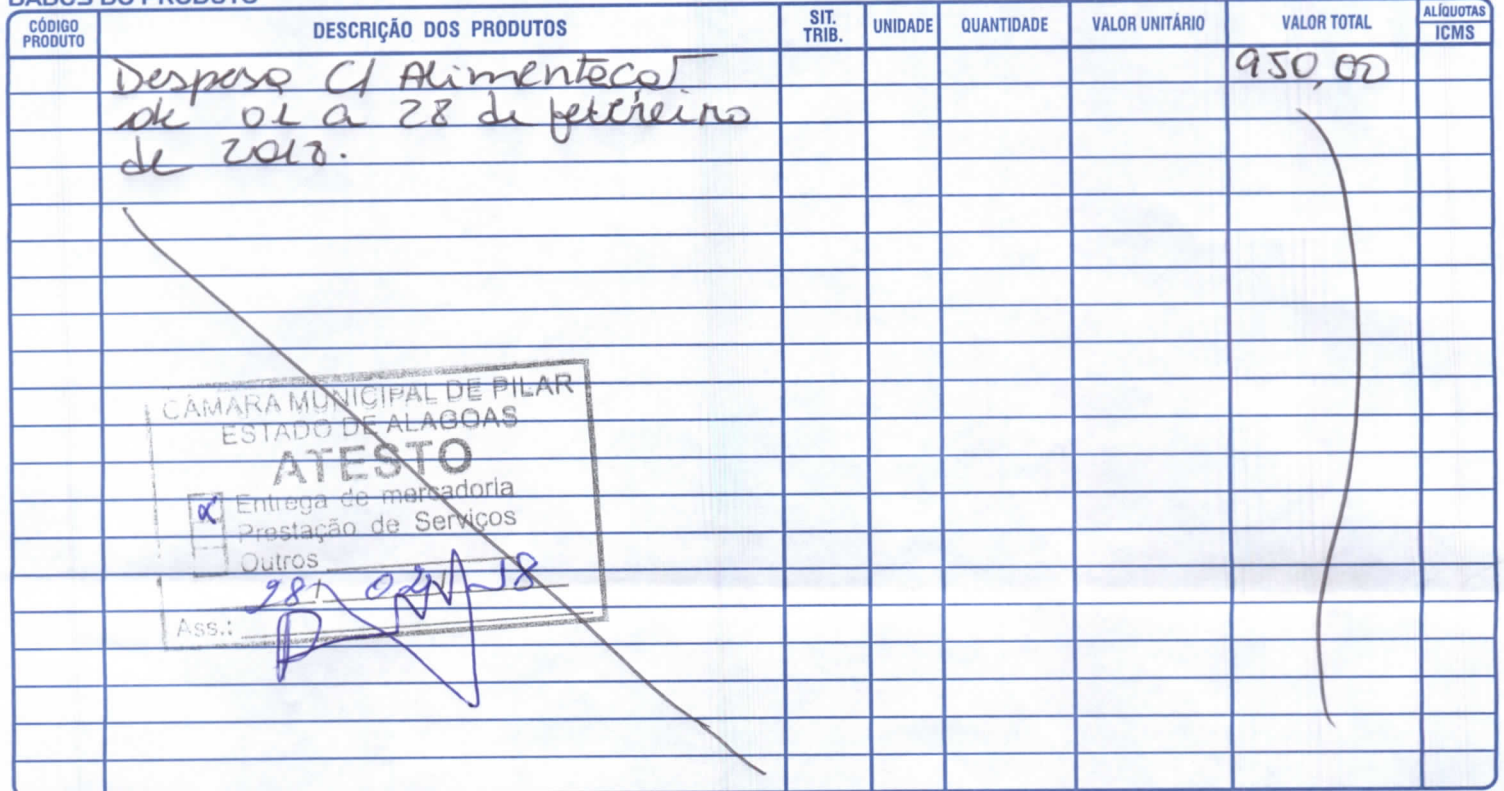 DADOS DO PRODUTO
CÓDIGO PRODUTO
DESCRIÇÃO DOS PRODUTOS
SIT. TRIB.
UNIDADE
QUANTIDADE
VALOR UNITÁRIO
VALOR TOTAL
ALÍQUOTAS
ICMS
Despesa C/ Alimentação 950,00
de 01 a 28 de fevereiro
de 2018.
CÂMARA MUNICIPAL DE PILAR
ESTADO DE ALAGOAS
ATESTO
Entrega de mercadoria
Prestação de Serviços
Outros
28 / 02 / 18
Ass.: